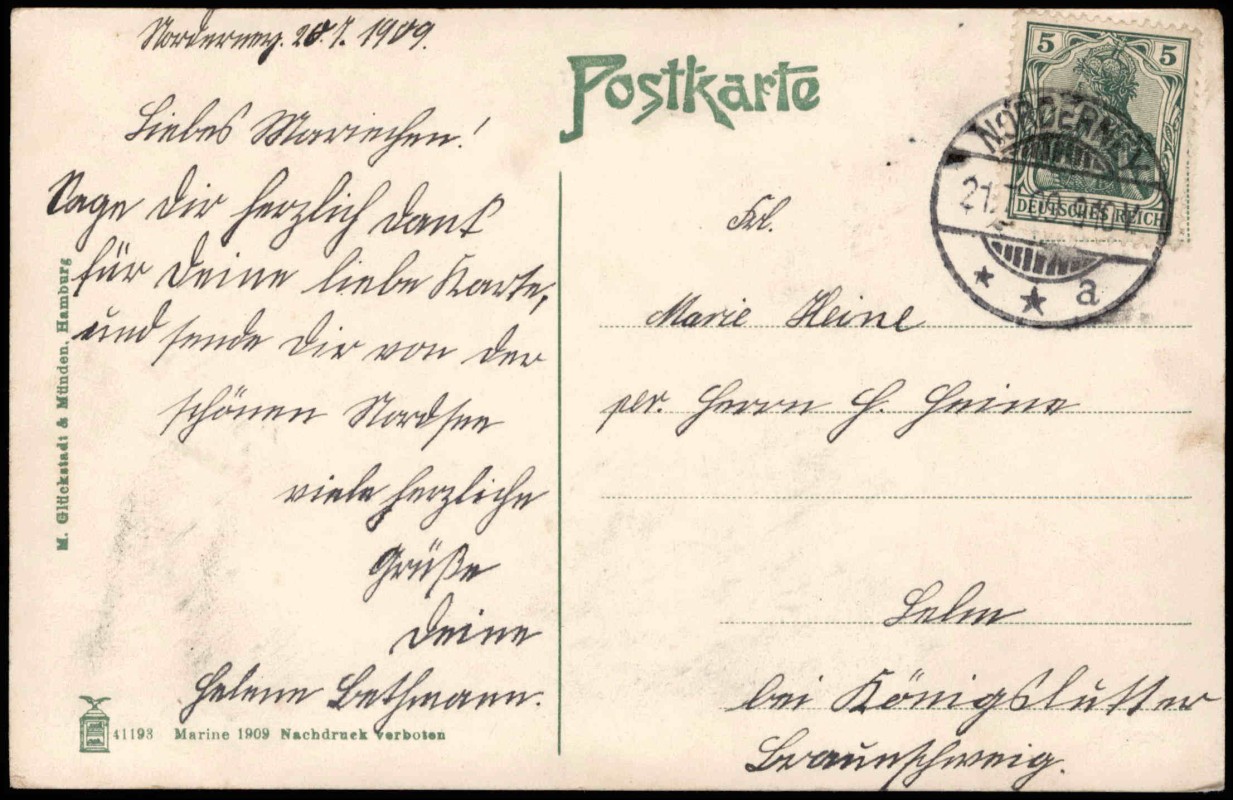 Norderney. 20.7. 1909.
Liebes Mariechen!
Sage Dir herzlich Dank
für Deine liebe Karte,
und sende Dir von der
schönen Nordsee
viele herzliche
Grüße
Deine
Helene Bethmann.
M. Glückstadt & Münden, Hamburg
41193 Marine 1909 Nachdruck verboten
Postkarte
5 5
DEUTSCHES REICH
NORDERNEY
21.7.09.
a
Frl.
Marie Heine
per. Herrn H. Heine
Lelm
bei Königslutter
Braunschweig.